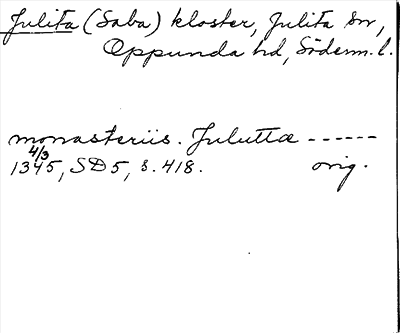 Julita (Saba) kloster, Julita sn,
Oppunda hd, Söderm. l.
monasteriis. Juluttæ ------
4/3
1345, SD 5, s. 418. orig.